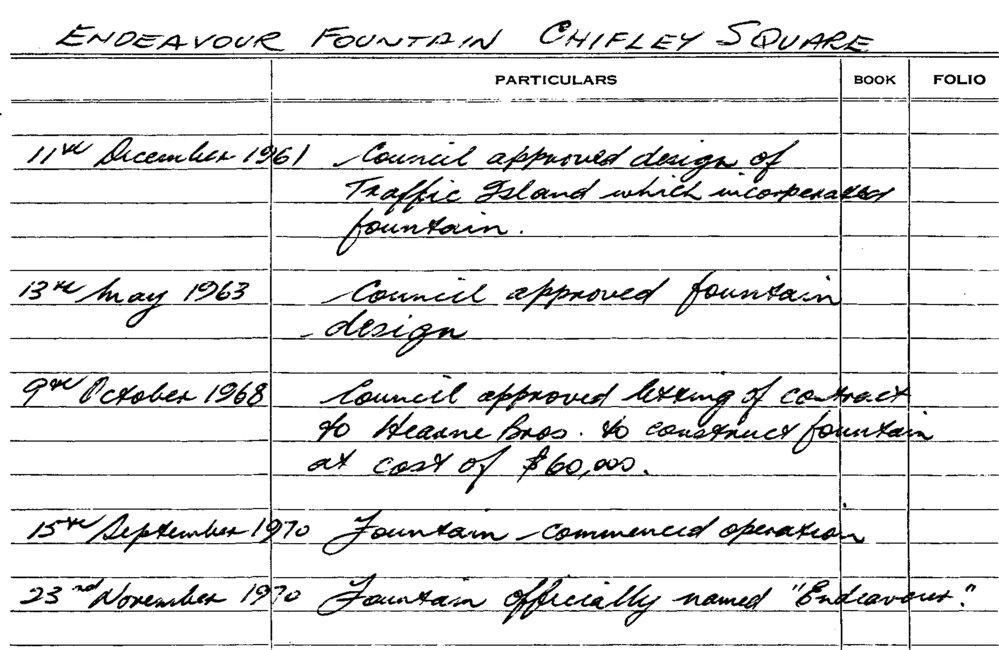 ENDEAVOUR FOUNTAIN CHIFLEY SQUARE
PARTICULARS BOOK FOLIO
11th December 1961 Council approved design of
Traffic Island which incorporated
fountain.
13th May 1963 Council approved fountain
design
9th October 1968 Council approved letting of contract
to Hearne Bros. to construct fountain
at cost of $60,000.
15th September 1970 Fountain commenced operation
23nd November 1970 Fountain officially named "Endeavour".